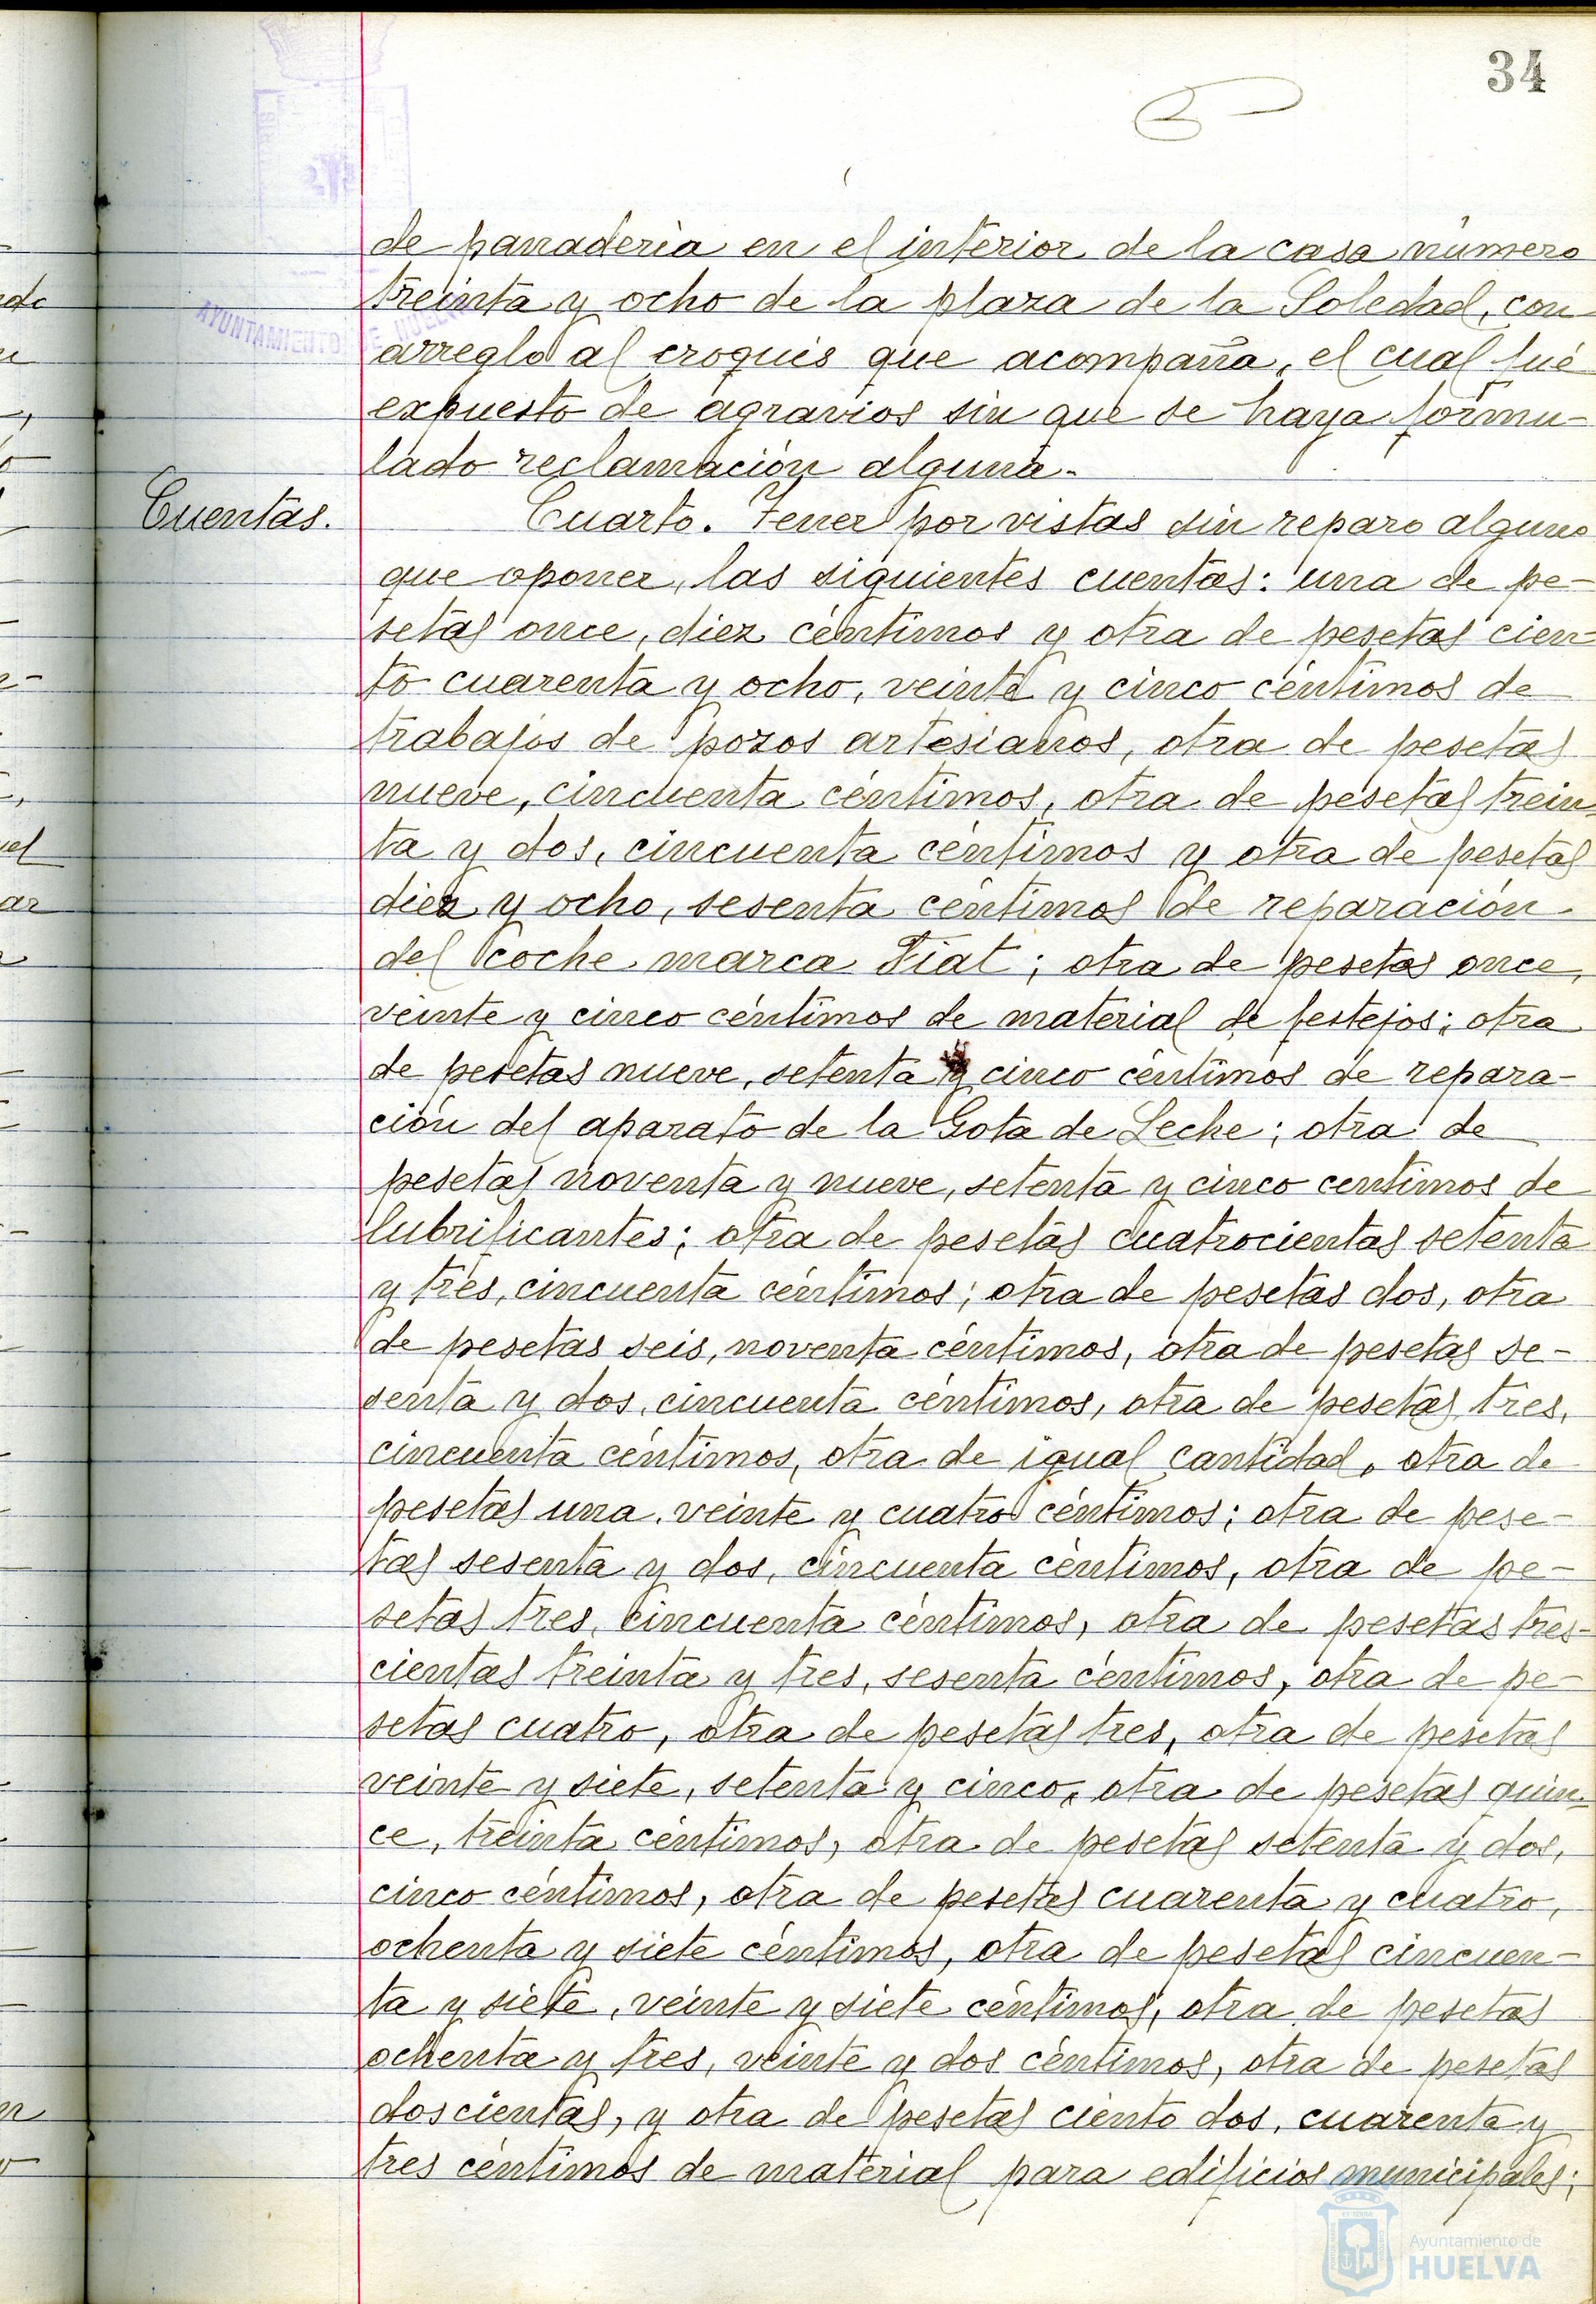 34
de panadería en el interior de la casa número
treinta y ocho de la plaza de la Soledad, con
arreglo al croquis que acompaña, el cual fué
expuesto de agravios sin que se haya formu-
lado reclamación alguna.
Cuentas.
Cuarto. Tener por vistas sin reparo alguno
que oponer, las siguientes cuentas: una de pe-
setas once, diez céntimos y otra de pesetas cien-
to cuarenta y ocho, veinte y cinco céntimos de
trabajos de pozos artesianos, otra de pesetas
nueve, cincuenta céntimos, otra de pesetas trein-
ta y dos, cincuenta céntimos y otra de pesetas
diez y ocho, sesenta céntimos de reparación
del coche marca Fiat; otra de pesetas once,
veinte y cinco céntimos de material de festejos; otra
de pesetas nueve, setenta y cinco céntimos de repara-
ción del aparato de la Gota de Leche; otra de
pesetas noventa y nueve, setenta y cinco centimos de
lubrificantes; otra de pesetas cuatrocientas setenta
y tres, cincuenta céntimos; otra de pesetas dos, otra
de pesetas seis, noventa céntimos, otra de pesetas se-
senta y dos, cincuenta céntimos, otra de pesetas tres,
cincuenta céntimos, otra de igual cantidad, otra de
pesetas una, veinte y cuatro céntimos; otra de pese-
tas sesenta y dos, cincuenta céntimos, otra de pe-
setas tres, cincuenta céntimos, otra de pesetas tres-
cientas treinta y tres, sesenta céntimos, otra de pe-
setas cuatro, otra de pesetas tres, otra de pesetas
veinte y siete, setenta y cinco, otra de pesetas quin-
ce, treinta céntimos, otra de pesetas setenta y dos,
cinco céntimos, otra de pesetas cuarenta y cuatro,
ochenta y siete céntimos, otra de pesetas cincuen-
ta y siete, veinte y siete céntimos, otra de pesetas
ochenta y tres, veinte y dos céntimos, otra de pesetas
doscientas, y otra de pesetas ciento dos, cuarenta y
tres céntimos de material para edificios municipales;
AYUNTAMIENTO DE HUELVA
Ayuntamiento de
HUELVA